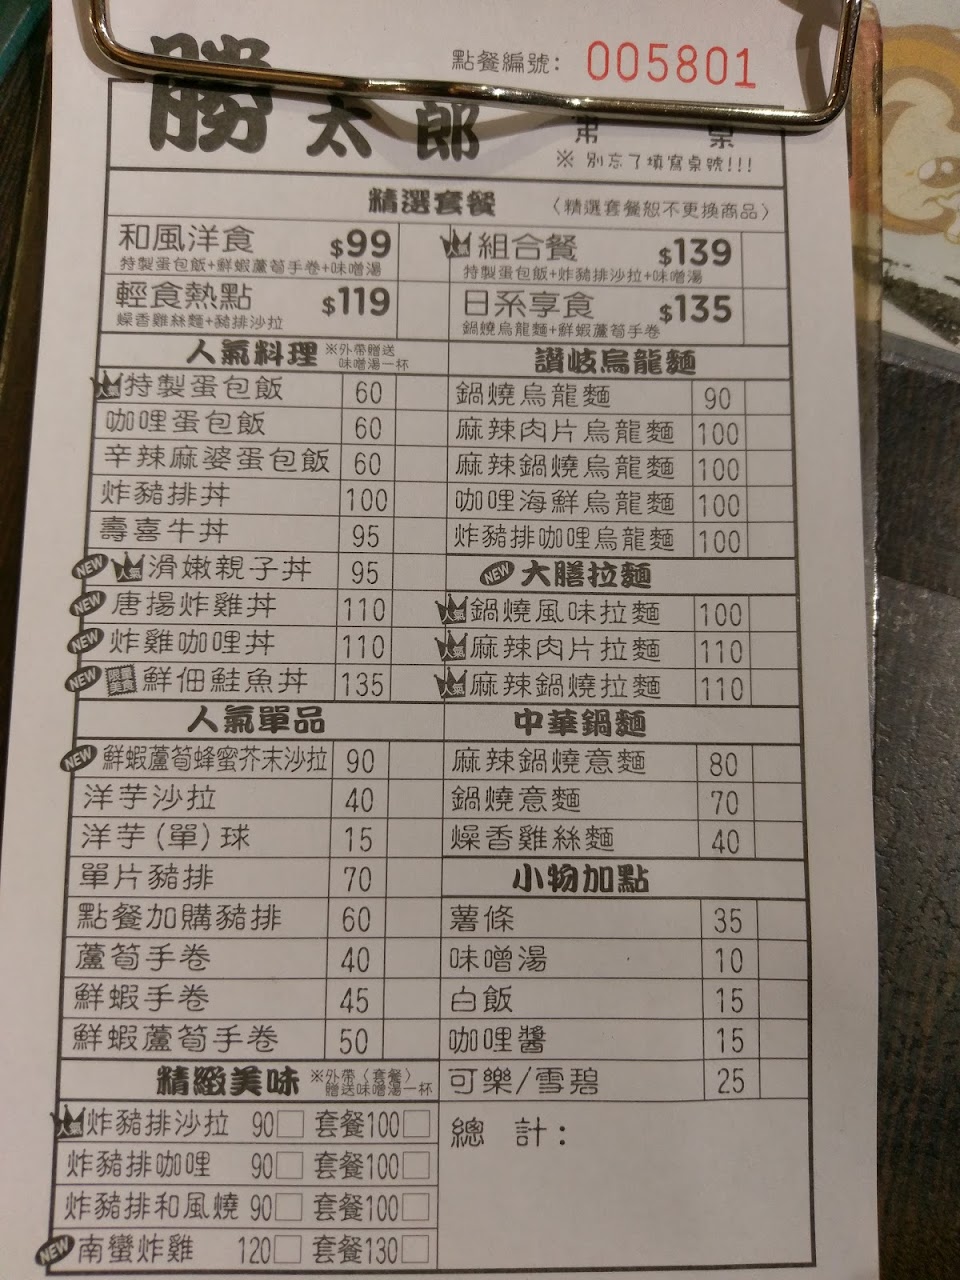 點餐編號: 005801
勝太郎
弗 桌
※ 別忘了填寫桌號!!!
精選套餐 〈精選套餐恕不更換商品〉
和風洋食 $99
特製蛋包飯+鮮蝦蘆筍手卷+味噌湯
組合餐 $139
特製蛋包飯+炸豬排沙拉+味噌湯
輕食熱點 $119
燥香雞絲麵+豬排沙拉
日系享食 $135
鍋燒烏龍麵+鮮蝦蘆筍手卷
人氣料理 ※外帶贈送
味噌湯一杯
人氣 特製蛋包飯 60
咖哩蛋包飯 60
辛辣麻婆蛋包飯 60
炸豬排丼 100
壽喜牛丼 95
NEW 人氣 滑嫩親子丼 95
NEW 唐揚炸雞丼 110
NEW 炸雞咖哩丼 110
NEW 限量美食 鮮佃鮭魚丼 135
人氣單品
NEW 鮮蝦蘆筍蜂蜜芥末沙拉 90
洋芋沙拉 40
洋芋(單)球 15
單片豬排 70
點餐加購豬排 60
蘆筍手卷 40
鮮蝦手卷 45
鮮蝦蘆筍手卷 50
精緻美味 ※外帶〈套餐〉
贈送味噌湯一杯
人氣 炸豬排沙拉 90□ 套餐100□
炸豬排咖哩 90□ 套餐100□
炸豬排和風燒 90□ 套餐100□
NEW 南蠻炸雞 120□ 套餐130□
讚岐烏龍麵
鍋燒烏龍麵 90
麻辣肉片烏龍麵 100
麻辣鍋燒烏龍麵 100
咖哩海鮮烏龍麵 100
炸豬排咖哩烏龍麵 100
NEW 大膳拉麵
人氣 鍋燒風味拉麵 100
人氣 麻辣肉片拉麵 110
人氣 麻辣鍋燒拉麵 110
中華鍋麵
麻辣鍋燒意麵 80
鍋燒意麵 70
燥香雞絲麵 40
小物加點
薯條 35
味噌湯 10
白飯 15
咖哩醬 15
可樂/雪碧 25
總 計: